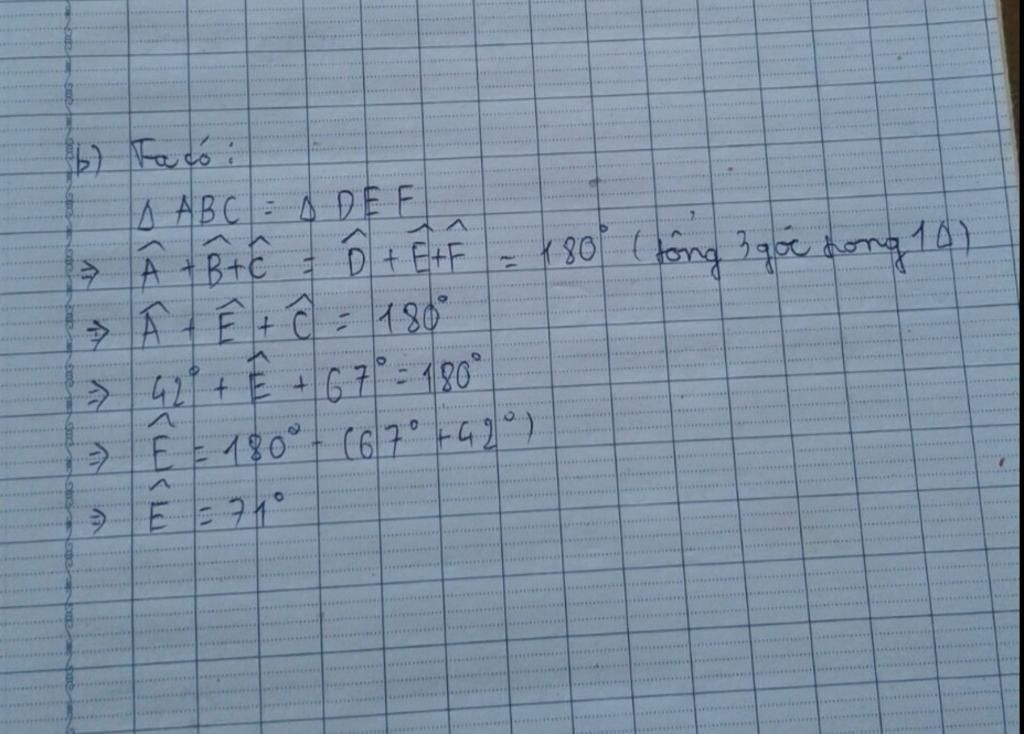 b) Ta có:
Δ ABC = Δ DEF
⇒ Â + B̂ + Ĉ = D̂ + Ê + F̂ = 180° (tổng 3 góc trong 1 Δ)
⇒ Â + Ê + Ĉ = 180°
⇒ 42° + Ê + 67° = 180°
⇒ Ê = 180° - (67° + 42°)
⇒ Ê = 71°